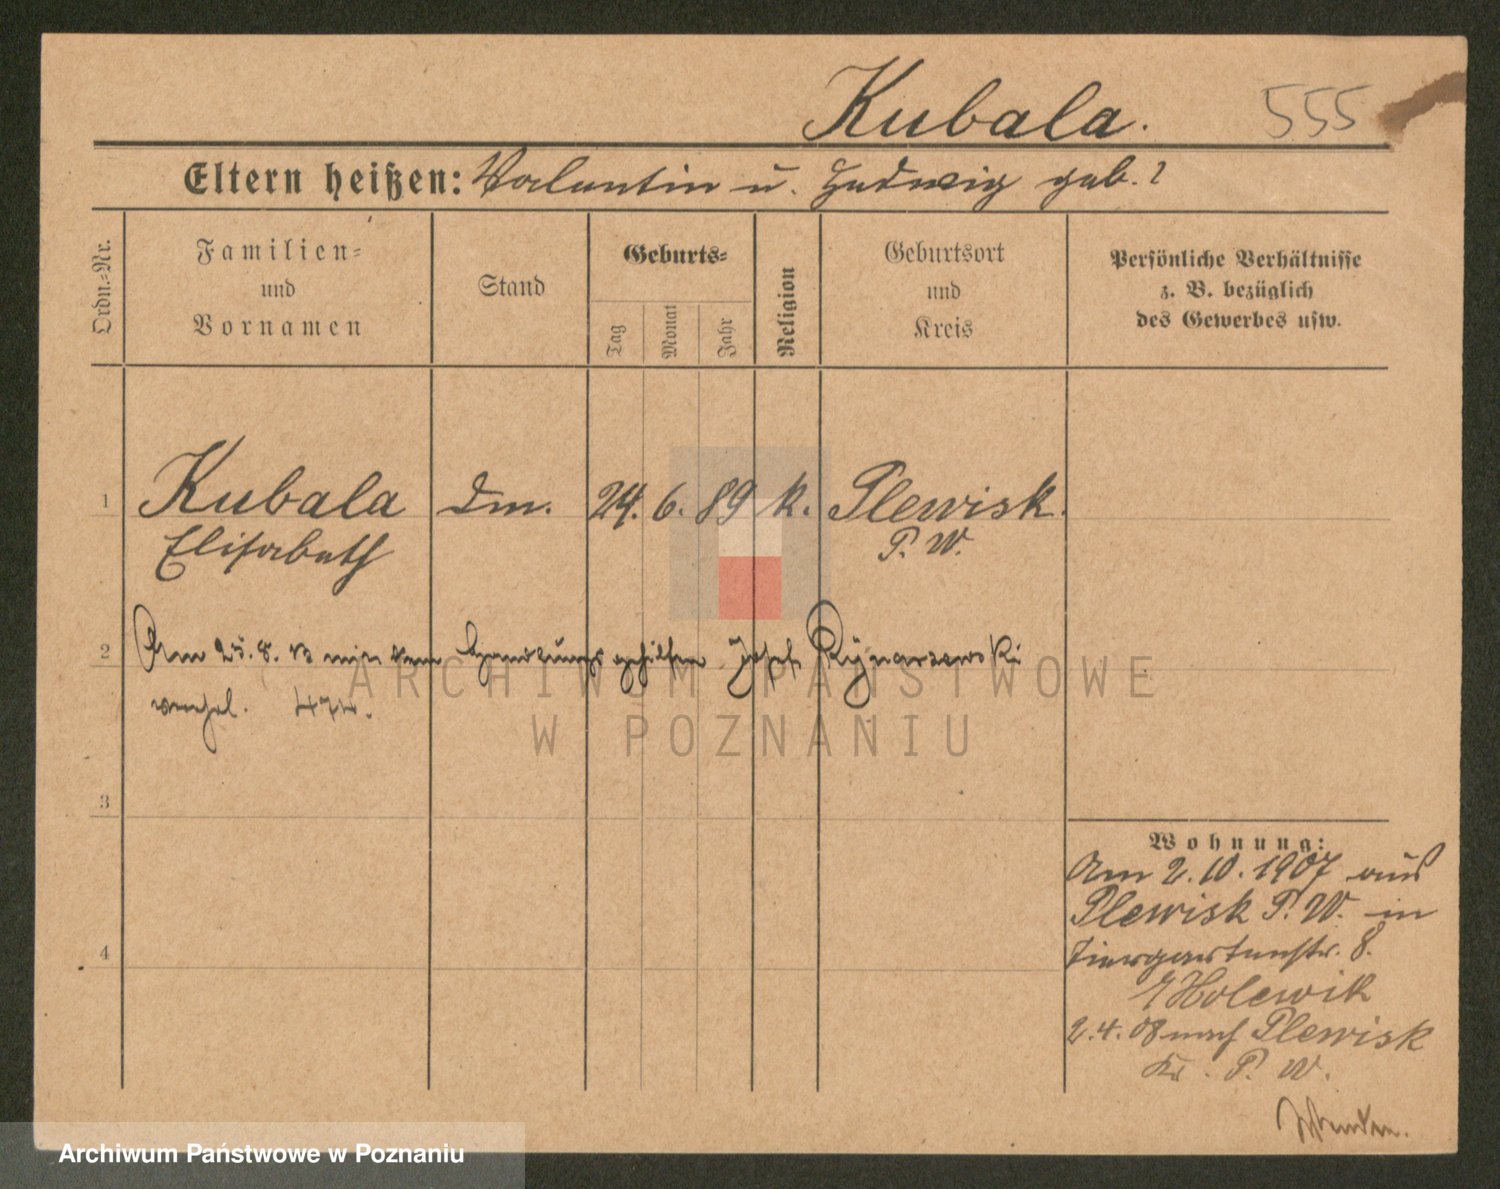 Kubala. 555
Eltern heißen: Valentin u. Hedwig geb. ?
Ordn.=Nr.
Familien=
und
Vornamen
Stand
Geburts=
Tag
Monat
Jahr
Religion
Geburtsort
und
Kreis
Persönliche Verhältnisse
z. B. bezüglich
des Gewerbes usw.
1 Kubala Dm. 24. 6. 89 k. Plewisk.
Elisabeth P. W.
2 Am 25. 8. 13 mit dem Handlungsgehilfen Josef Rÿnarzewski
verehel.
ARCHIWUM PAŃSTWOWE
W POZNANIU
3
4
Wohnung:
Am 2. 10. 1907 aus
Plewisk P. W. in
Tiergartenstr. 8.
Holewik
2. 4. 08 nach Plewisk
Kr. P. W.
Archiwum Państwowe w Poznaniu